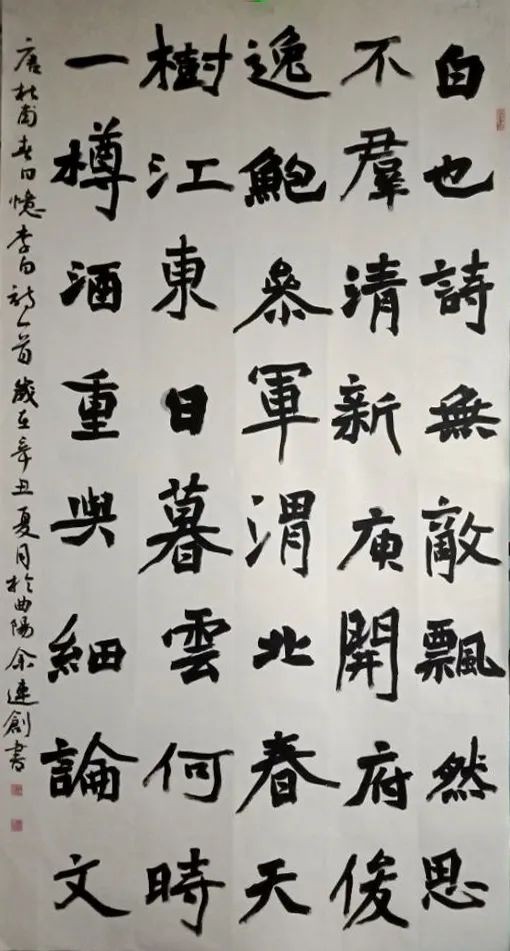 白也詩無敵飄然思
不羣清新庾開府俊
逸鮑參軍渭北春天
樹江東日暮雲何時
一樽酒重與細論文
唐杜甫春日憶李白詩一首歲在辛丑夏月於曲陽余連創書